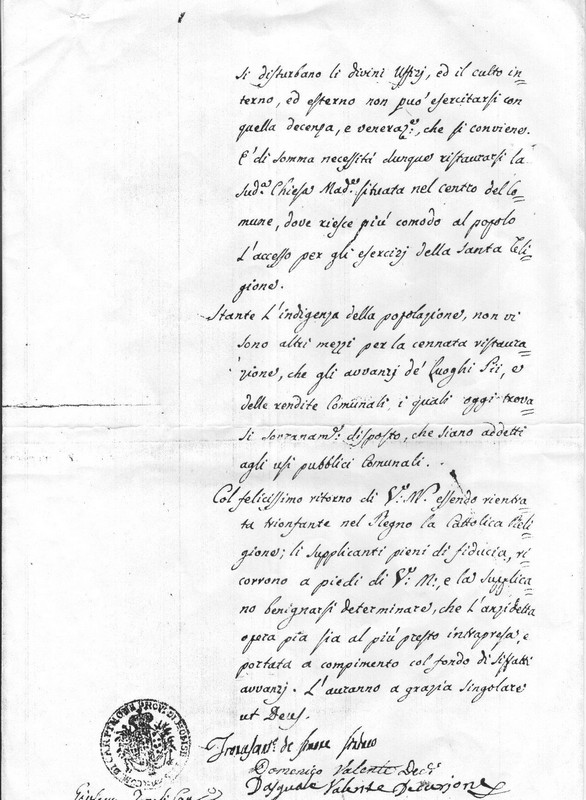 si disturbano li divini Uffizj, ed il culto in=
terno, ed esterno non può esercitarsi con
quella decenza, e veneraz.e, che si conviene.
E' di somma necessità dunque ristaurarsi la
sud.a Chiesa Mad.e situata nel centro del Co=
mune, dove riesce più comodo al popolo
l'accesso per gli esercizj della Santa Reli=
gione.
Stante l'indigenza della popolazione, non vi
sono altri mezzi per la cennata ristaura=
zione, che gli avvanzj de' Luoghi Pii, e
delle rendite Comunali, i quali oggi trova=
si sovranam.e disposto, che siano addetti
agli usi pubblici Comunali.
Col felicissimo ritorno di V.M. essendo rientra=
ta trionfante nel Regno la Cattolica Reli=
gione; li supplicanti pieni di fiducia, ri=
corrono a piedi di V.M., e la supplica=
no benignarsi determinare, che l'anzidetta
opera pia sia al più presto intrapresa, e
portata a compimento col fondo di siffatti
avvanzj. L'auranno a grazia singolare
ut Deus.
de Simone Sindaco
Domenico Valente Dec.e
Pasquale Valente Decurione